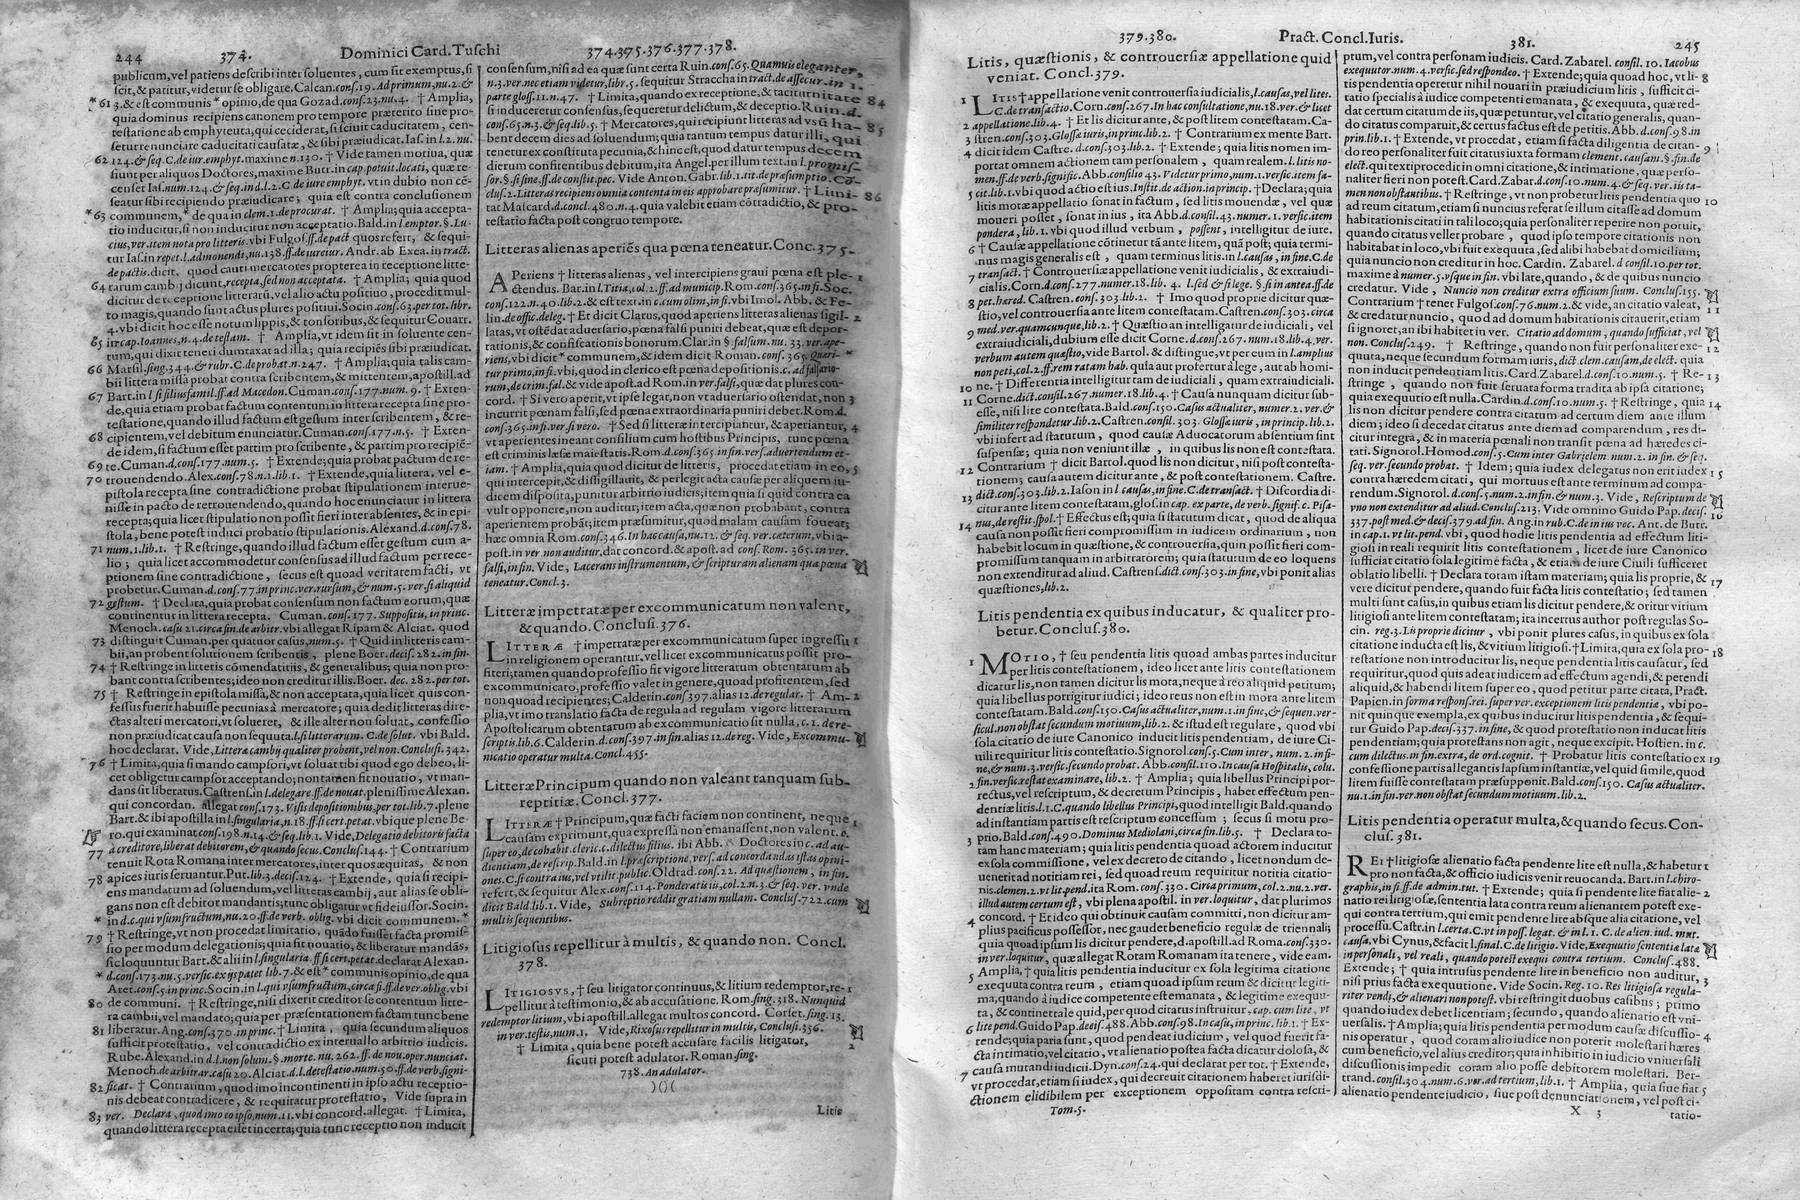 244 374. Dominici Card. Tuſchi 374.375.376.377.378.
publicum, vel patiens deſcribi inter ſoluentes, cum ſit exemptus, ſi
ſcit, & patitur, videtur ſe obligare. Calcan. conſ.19. Ad primum, nu.2. &
*61 3. & eſt communis * opinio, de qua Gozad. conſ.23. nu.4. † Amplia,
quia dominus recipiens canonem pro tempore præterito ſine pro-
teſtatione ab emphyteuta, qui ceciderat, ſi ſciuit caducitatem, cen-
ſetur renunciare caducitati cauſatæ, & ſibi præiudicat. Iaſ. in l.2. nu.
62 124. & ſeq. C. de iur. emphyt. maxime n.130. † Vide tamen motiua, quæ
ſiunt per aliquos Doctores, maxime Butr. in cap. potuit. locati, quæ re-
cenſet Iaſ. num.124. & ſeq. in d.l.2. C. de iure emphyt. vt in dubio non cē-
ſeatur ſibi recipiendo præiudicare; quia eſt contra concluſionem
*63 communem, * de qua in clem.1. de procurat. † Amplia; quia accepta-
tio inducitur, ſi non inducitur non acceptatio. Bald. in l. emptor. §. Lu-
cius, ver. item nota pro litteris. vbi Fulgoſ. ff. de pact. quos refert, & ſequi-
tur Iaſ. in repet. l. admonendi, nu.138. ff. de iureiur. Andr. ab Exea. in tract.
de pactis. dicit, quod cauti mercatores propterea in receptione litte-
64 rarum cambij dicunt, recepta, ſed non acceptata. † Amplia; quia quod
dicitur de receptione litterarū, vel alio actu poſitiuo, procedit mul-
to magis, quando ſunt actus plures poſitiui. Socin. conſ.63. per tot. libr.
4. vbi dicit hoc eſſe notum lippis, & tonſoribus, & ſequitur Couarr.
65 in cap. Ioannes, n.4. de teſtam. † Amplia, vt idem ſit in ſoluente cen-
tum, qui dixit teneri dumtaxat ad illa; quia recipiēs ſibi præiudicat.
66 Marſil. ſing.344. & rubr. C. de probat. n.247. † Amplia; quia talis cam-
bii littera miſſa probat contra ſcribentem, & mittentem, apoſtill. ad
67 Bart. in l. ſi filiusfamil. ff. ad Macedon. Cuman. conſ.177. num.9. † Exten-
de, quia etiam probat factum contentum in littera recepta ſine pro-
teſtatione, quando illud factum eſt geſtum inter ſcribentem, & re-
68 cipientem, vel debitum enunciatur. Cuman. conſ.177. n.5. † Exten-
de idem, ſi factum eſſet partim pro ſcribente, & partim pro recipiē-
69 te. Cuman. d. conſ.177. num.5. † Extende; quia probat pactum de re-
70 trouendendo. Alex. conſ.78. n.1. lib.1. † Extende, quia littera, vel e-
piſtola recepta ſine contradictione probat ſtipulationem interue-
niſſe in pacto de retrouendendo, quando hoc enunciatur in littera
recepta; quia licet ſtipulatio non poſſit fieri inter abſentes, & in epi-
ſtola, bene poteſt induci probatio ſtipulationis. Alexand. d. conſ.78.
71 num.1. lib.1. † Reſtringe, quando illud factum eſſet geſtum cum a-
lio; quia licet accommodetur conſenſus ad illud factum per rece-
ptionem ſine contradictione, ſecus eſt quoad veritatem facti, vt
probetur. Cuman. d. conſ.77. in princ. ver. rurſum, & num.5. ver. ſi aliquid
72 geſtum. † Declara, quia probat conſenſum non factum eorum, quæ
continentur in littera recepta. Cuman. conſ.177. Suppoſitis, in princ.
Menoch. caſu 21. circa fin. de arbitr. vbi allegat Ripam & Alciat. quod
73 diſtinguit Cuman. per quatuor caſus, num.5. † Quid in litteris cam-
bii, an probent ſolutionem ſcribentis, plene Boer. deciſ.282. in fin.
74 † Reſtringe in litteris cōmendatitiis, & generalibus; quia non pro-
bant contra ſcribentes; ideo non creditur illis. Boer. dec. 282. per tot.
75 † Reſtringe in epiſtola miſſa, & non acceptata, quia licet quis con-
feſſus fuerit habuiſſe pecunias à mercatore; quia dedit litteras dire-
ctas alteri mercatori, vt ſolueret, & ille alter non ſoluat, confeſſio
non præiudicat cauſa non ſequuta. l. ſi litterarum. C. de ſolut. vbi Bald.
hoc declarat. Vide, Litteræ cambij qualiter probent, vel non. Concluſi. 342.
76 † Limita, quia ſi mando campſori, vt ſoluat tibi quod ego debeo, li-
cet obligetur campſor acceptando; non tamen fit nouatio, vt man-
dans ſit liberatus. Caſtrenſ. in l. delegare. ff. de nouat. pleniſſime Alexan.
qui concordan. allegat conſ.173. Viſis depoſitionibus, per tot. lib.7. plene
Bart. & ibi apoſtilla in l. ſingularia, n.18. ff. ſi cert. petat. vbique plene Be-
ro. qui examinat conſ.198. n.14. & ſeq. lib.1. Vide, Delegatio debitoris facta
à creditore, liberat debitorem, & quando ſecus. Concluſ.144. † Contrarium
77 tenuit Rota Romana inter mercatores, inter quos æquitas, & non
apices iuris ſeruantur. Put. lib.3. deciſ.124. † Extende, quia ſi recipi-
78 ens mandatum ad ſoluendum, vel litteras cambij, aut alias ſe obli-
gans non eſt debitor mandantis; tunc obligatur vt fideiuſſor. Socin.
* in d. c. qui vſumfructum, nu.20. ff. de verb. oblig. vbi dicit communem. *
79 † Reſtringe, vt non procedat limitatio, quādo fuiſſet facta promiſ-
ſio per modum delegationis; quia ſit nouatio, & liberatur mandās,
ſic loquuntur Bart. & alii in l. ſingularia. ff. ſi cert. petat. declarat Alexan.
* d. conſ.173. nu.5. verſic. ex ijs patet lib.7. & eſt * communis opinio, de qua
Aret. conſ.5. in princ. Socin. in l. qui vſumfructum, circa fi. ff. de ver. oblig. vbi
80 de communi. † Reſtringe, niſi dixerit creditor ſe contentum litte-
ra cambii, vel mandato; quia per præſentationem factam tunc bene
81 liberatur. Ang. conſ.370. in princ. † Limita, quia ſecundum aliquos
ſufficit proteſtatio, vel contradictio ex interuallo arbitrio iudicis.
Rube. Alexand. in d. l. non ſolum. §. morte. nu. 262. ff. de nou. oper. nunciat.
Menoch. de arbitrar. caſu 20. Alciat. d. l. deteſtatio. num.50. ff. de verb. ſigni-
82 ficat. † Contrarium, quod imo incontinenti in ipſo actu receptio-
nis debeat contradicere, & requiratur proteſtatio, Vide ſupra in
83 ver. Declara, quod imo eo ipſo, num.11. vbi concord. allegat. † Limita,
quando littera recepta eſſet incerta; quia tunc receptio non inducit
conſenſum, niſi ad ea quæ ſunt certa Ruin. conſ.65. Quamuis eleganter,
n.3. ver. nec etiam videtur, libr.5. ſequitur Straccha in tract. de aſſecur. in 1.
parte gloſſ.11. n.47. † Limita, quando ex receptione, & taciturnitate 84
ſi induceretur conſenſus, ſequeretur delictum, & deceptio. Ruin. d.
conſ.65. n.3. & ſeq. lib.5. † Mercatores, qui recipiunt litteras ad vſū ha- 85
bent decem dies ad ſoluendum; quia tantum tempus datur illi, qui
tenetur ex conſtituta pecunia, & hinc eſt, quod datur tempus decem
dierum confitentibus debitum, ita Angel. per illum text. in l. promiſ-
ſor. §. ſi fine. ff. de conſtit. pec. Vide Anton. Gabr. lib.1. tit. de præſumptio. Cō-
cluſ.2. Litteras recipiens omnia contenta in eis approbare præſumitur. † Limi- 86
tat Maſcard. d. concl.480. n.4. quia valebit etiam cōtradictio, & pro-
teſtatio facta poſt congruo tempore.
Litteras alienas aperiēs qua pœna teneatur. Conc. 375.
APeriens † litteras alienas, vel intercipiens graui pœna eſt ple- 1
ctendus. Bar. in l. Titia, col.2. ff. ad municip. Rom. conſ.365. in fi. Soc.
conſ.122. n.40. lib.2. & eſt text. in c. cum olim, in fi. vbi Imol. Abb. & Fe-
lin. de offic. deleg. † Et dicit Clatus, quod aperiens litteras alienas ſigil- 2
latas, vt oſtēdat aduerſario, pœna falſi puniri debeat, quæ eſt depor-
tationis, & confiſcationis bonorum. Clar. in §. falſum. nu. 33. ver. ape-
riens, vbi dicit * communem, & idem dicit Roman. conſ. 365. Quari- *
tur primo, in fi. vbi, quod in clerico eſt pœna depoſitionis. c. ad falſario-
rum, de crim. fal. & vide apoſt. ad Rom. in ver. falſi, quæ dat plures con-
cord. † Si vero aperit, vt ipſe legat, non vt aduerſario oſtendat, non 3
incurrit pœnam falſi, ſed pœna extraordinaria puniri debet. Rom. d.
conſ.365. in fi. ver. ſi vero. † Sed ſi litteræ intercipiantur, & aperiantur, 4
vt aperientes ineant conſilium cum hoſtibus Principis, tunc pœna
eſt criminis læſæ maieſtatis. Rom. d. conſ.365. in fin. verſ. aduertendum et-
iam. † Amplia, quia quod dicitur de litteris, procedat etiam in eo, 5
qui intercepit, & diſſigillauit, & perlegit acta cauſæ per aliquem iu-
dicem diſpoſita, punitur arbitrio iudicis; item quia ſi quid contra ea
vult opponere, non auditur; item acta, quæ non probabant, contra
aperientem probāt; item præſumitur, quod malam cauſam foueat;
hæc omnia Rom. conſ.346. In hac cauſa, nu.12. & ſeq. ver. cæterum, vbi a-
poſt. in ver. non auditur. dat concord. & apoſt. ad conſ. Rom. 365. in ver.
falſi, in fin. Vide, Lacerans inſtrumentum, & ſcripturam alienam qua pœna
teneatur. Concl.3.
Litteræ impetratæ per excommunicatum non valent,
& quando. Concluſi. 376.
LITTERÆ † impetratæ per excommunicatum ſuper ingreſſu 1
in religionem operantur, vel licet excommunicatus poſſit pro-
fiteri; tamen quando profeſſio ſit vigore litterarum obtentarum ab
excommunicato, profeſſio valet in genere, quoad profitentem, ſed
non quoad recipientes; Calderin. conſ.397. alias 12. de regular. † Am- 2
plia, vt imo tranſlatio facta de regula ad regulam vigore litterarum
Apoſtolicarum obtentarum ab excommunicato ſit nulla, c.1. de re-
ſcriptis. lib.6. Calderin. d. conſ.397. in fin. alias 12. de reg. Vide, Excommu-
nicatio operatur multa. Concl.455.
Litteræ Principum quando non valeant tanquam ſub-
reptitiæ. Concl. 377.
LITTERÆ † Principum, quæ facti faciem non continent, neque 1
cauſam exprimunt, qua expreſſa non emanaſſent, non valent. c.
ſuper eo, de cohabit. cleric. c. dilectus filius. ibi Abb. & Doctores in c. ad au-
dientiam, de reſcrip. Bald. in l. præſcriptione. verſ. ad concordandas iſtas opini-
ones. C. ſi contra ius, vel vtilit. public. Oldrad. conſ.22. Ad quæſtionem, in fin.
refert, & ſequitur Alex. conſ.114. Ponderatis iis, col.2. n.3. & ſeq. ver. vnde
dicit Bald. lib.1. Vide, Subreptio reddit gratiam nullam. Concluſ.722. cum
multis ſequentibus.
Litigioſus repellitur à multis, & quando non. Concl.
378.
LITIGIOSVS, † ſeu litigator continuus, & litium redemptor, re- 1
pellitur à teſtimonio, & ab accuſatione. Rom. ſing.318. Nunquid
redemptor litium, vbi apoſtill. allegat multos concord. Corſet. ſing. 13.
in ver. teſtis, num.1. Vide, Rixoſus repellitur in multis, Concluſi.356.
† Limita, quia bene poteſt accuſare facilis litigator, 2
ſicuti poteſt adulator. Roman. ſing.
738. An adulator.
)()(
Litis
379.380. Pract. Concl. Iuris. 381. 245
Litis, quæſtionis, & controuerſiæ appellatione quid
veniat. Concl. 379.
1 LITIS † appellatione venit controuerſia iudicialis, l. cauſas, vel lites.
C. de tranſactio. Corn. conſ.267. In hac conſultatione, nu.18. ver. & licet
2 appellatione. lib.4. † Et lis dicitur ante, & poſt conteſtationem. Ca-
3 ſtren. conſ.303. Gloſſa iuris, in princ. lib.2. † Contrarium ex mente Bart.
4 dicit idem Caſtre. d. conſ.303. lib.2. † Extende; quia litis nomen im-
portat omnem actionem tam perſonalem, quam realem. l. litis no-
men. ff. de verb. ſignific. Abb. conſilio 43. Videtur primo, num.1. verſic. item fa-
5 cit. lib.1. vbi quod actio eſt ius. Inſtit. de action. in princip. † Declara; quia
litis motæ appellatio ſonat in factum, ſed litis mouendæ, vel quæ
moueri poſſet, ſonat in ius, ita Abb. d. conſil.43. numer.1. verſic. item
pondera, lib.1. vbi quod illud verbum, poſſent, intelligitur de iure.
6 † Cauſæ appellatione cōtinetur tā ante litem, quā poſt; quia termi-
nus magis generalis eſt, quam terminus litis. in l. cauſas, in fine. C. de
7 tranſact. † Controuerſiæ appellatione venit iudicialis, & extraiudi-
cialis. Corn. d. conſ.277. num.18. lib. 4. l. ſed & ſi lege. §. ſi in antea. ff. de
8 pet. hæred. Caſtren. conſ.303. lib.2. † Imo quod proprie dicitur quæ-
ſtio, vel controuerſia ante litem conteſtatam. Caſtren. conſ.303. circa
9 med. ver. quamcunque, lib.2. † Quæſtio an intelligatur de iudiciali, vel
extraiudiciali, dubium eſſe dicit Corne. d. conſ.267. num.18. lib.4. ver.
verbum autem quæſtio, vide Bartol. & diſtingue, vt per eum in l. amplius
non peti, col.2. ff. rem ratam hab. quia aut profertur à lege, aut ab homi-
10 ne. † Differentia intelligitur tam de iudiciali, quam extraiudiciali.
11 Corne. dict. conſil.267. num.18. lib.4. † Cauſa nunquam dicitur ſub-
eſſe, niſi lite conteſtata. Bald. conſ.150. Caſus actualiter, numer.2. ver. &
ſimiliter reſpondetur. lib.2. Caſtren. conſil. 303. Gloſſa iuris, in princip. lib.2.
vbi infert ad ſtatutum, quod cauſæ Aduocatorum abſentium ſint
ſuſpenſæ; quia non veniunt illæ, in quibus lis non eſt conteſtata.
12 Contrarium † dicit Bartol. quod lis non dicitur, niſi poſt conteſta-
tionem; cauſa autem dicitur ante, & poſt conteſtationem. Caſtre.
13 dict. conſ.303. lib.2. Iaſon in l. cauſas, in fine. C. de tranſact. † Diſcordia di-
citur ante litem conteſtatam, gloſ. in cap. ex parte, de verb. ſignif. c. Piſa-
14 nus, de reſtit. ſpol. † Effectus eſt; quia ſi ſtatutum dicat, quod de aliqua
cauſa non poſſit fieri compromiſſum in iudicem ordinarium, non
habebit locum in quæſtione, & controuerſia, quin poſſit fieri com-
promiſſum tanquam in arbitratorem; quia ſtatutum de eo loquens
non extenditur ad aliud. Caſtrenſ. dict. conſ.303. in fine, vbi ponit alias
quæſtiones, lib.2.
Litis pendentia ex quibus inducatur, & qualiter pro-
betur. Concluſ. 380.
1 MOTIO, † ſeu pendentia litis quoad ambas partes inducitur
per litis conteſtationem, ideo licet ante litis conteſtationem
dicatur lis, non tamen dicitur lis mota, neque à reo aliquid petitum;
quia libellus porrigitur iudici; ideo reus non eſt in mora ante litem
conteſtatam. Bald. conſ.150. Caſus actualiter, num.1. in fine, & ſequen. ver-
ſicul. non obſtat ſecundum motiuum, lib.2. & iſtud eſt regulare, quod vbi
ſola citatio de iure Canonico inducit litis pendentiam, de iure Ci-
uili requiritur litis conteſtatio. Signorol. conſ.5. Cum inter, num.2. in fi-
ne, & num.3. verſic. ſecundo probat. Abb. conſil.110. In cauſa Hoſpitalis, colu.
2 fin. verſic. reſtat examinare, lib.2. † Amplia; quia libellus Principi por-
rectus, vel reſcriptum, & decretum Principis, habet effectum pen-
dentiæ litis. l.1. C. quando libellus Principi, quod intelligit Bald. quando
ad inſtantiam partis eſt reſcriptum conceſſum; ſecus ſi motu pro-
3 prio. Bald. conſ.490. Dominus Mediolani, circa fin. lib.5. † Declara to-
tam hanc materiam; quia litis pendentia quoad actorem inducitur
ex ſola commiſſione, vel ex decreto de citando, licet nondum de-
uenerit ad notitiam rei, ſed quoad reum requiritur notitia citatio-
nis. clemen.2. vt lit. pend. ita Rom. conſ.330. Circa primum, col.2. nu.2. ver.
illud autem certum eſt, vbi plena apoſtil. in ver. loquutur, dat plurimos
4 concord. † Et ideo qui obtinuit cauſam committi, non dicitur am-
plius pacificus poſſeſſor, nec gaudet beneficio regulæ de triennali;
quia quoad ipſum lis dicitur pendere, d. apoſtill. ad Roma. conſ.330.
in ver. loquitur, quæ allegat Rotam Romanam ita tenere, vide eam.
5 Amplia, † quia litis pendentia inducitur ex ſola legitima citatione
exequuta contra reum, etiam quoad ipſum reum & dicitur legiti-
ma, quando à iudice competente eſt emanata, & legitime exequu-
ta, & continet tale quid, per quod citatus inſtruitur, cap. cum lite, vt
6 lite pend. Guido Pap. deciſ.488. Abb. conſ.98. In caſu, in princ. lib.1. † Ex-
tende; quia paria ſunt, quod pendeat iudicium, vel quod fuerit fa-
cta intimatio, vel citatio, vt alienatio poſtea facta dicatur doloſa, &
cauſa mutandi iudicii. Dyn. conſ.24. qui declarat per tot. † Extende,
7 vt procedat, etiam ſi iudex, qui decreuit citationem haberet iuriſdi-
ctionem elidibilem per exceptionem oppoſitam contra reſcri-
Tom.5.
ptum, vel contra perſonam iudicis. Card. Zabarel. conſil. 10. Iacobus
exequutor. num.4. verſic. ſed reſpondeo. † Extende; quia quoad hoc, vt li- 8
tis pendentia operetur nihil nouari in præiudicium litis, ſufficit ci-
tatio ſpecialis à iudice competenti emanata, & exequuta, quæ red-
dat certum citatum de iis, quæ petuntur, vel citatio generalis, quan-
do citatus comparuit, & certus factus eſt de petitis. Abb. d. conſ.98. in
prin. lib.1. † Extende, vt procedat, etiam ſi facta diligentia de citan- 9
do reo perſonaliter fuit citatus iuxta formam clement. cauſam. §. fin. de
elect. qui text. procedit in omni citatione, & intimatione, quæ perſo-
naliter fieri non poteſt. Card. Zabar. d. conſ.10. num.4. & ſeq. ver. iis ta-
men non obſtantibus. † Reſtringe, vt non probetur litis pendentia quo 10
ad reum citatum, etiam ſi nuncius referat ſe illum citaſſe ad domum
habitationis citati in tali loco; quia perſonaliter reperire non potuit,
quando citatus vellet probare, quod ipſo tempore citationis non
habitabat in loco, vbi fuit exequuta, ſed alibi habebat domicilium;
quia nuncio non creditur in hoc. Cardin. Zabarel. d. conſil.10. per tot.
maxime à numer.5. vſque in fin. vbi late, quando, & de quibus nuncio
credatur. Vide, Nuncio non creditur extra officium ſuum. Concluſ.155.
Contrarium † tenet Fulgoſ. conſ.76. num.2. & vide, an citatio valeat, 11
& credatur nuncio, quod ad domum habitationis citauerit, etiam
ſi ignoret, an ibi habitet in ver. Citatio ad domum, quando ſufficiat, vel
non. Concluſ.249. † Reſtringe, quando non fuit perſonaliter exe- 12
quuta, neque ſecundum formam iuris, dict. clem. cauſam, de elect. quia
non inducit pendentiam litis. Card. Zabarel. d. conſ.10. num.5. † Re- 13
ſtringe, quando non fuit ſeruata forma tradita ab ipſa citatione;
quia exequutio eſt nulla. Cardin. d. conſ.10. num.5. † Reſtringe, quia 14
lis non dicitur pendere contra citatum ad certum diem ante illum
diem; ideo ſi decedat citatus ante diem ad comparendum, res di-
citur integra, & in materia pœnali non tranſit pœna ad hæredes ci-
tati. Signorol. Homod. conſ.5. Cum inter Gabrielem. num.2. in fin. & ſeq.
ſeq. ver. ſecundo probat. † Idem; quia iudex delegatus non erit iudex 15
contra hæredem citati, qui mortuus eſt ante terminum ad compa-
rendum. Signorol. d. conſ.5. num.2. in fin. & num.3. Vide, Reſcriptum de
vno non extenditur ad aliud. Concluſ.212. Vide omnino Guido Pap. dec. 16
337. poſt med. & deciſ.379. ad fin. Ang. in rub. C. de in ius voc. Ant. de Butr.
in cap.1. vt lit. pend. vbi, quod hodie litis pendentia ad effectum liti-
gioſi in reali requirit litis conteſtationem, licet de iure Canonico
ſufficiat citatio ſola legitime facta, & etiam de iure Ciuili ſufficeret
oblatio libelli. † Declara totam iſtam materiam; quia lis proprie, & 17
vere dicitur pendere, quando fuit facta litis conteſtatio; ſed tamen
multi ſunt caſus, in quibus etiam lis dicitur pendere, & oritur vitium
litigioſi ante litem conteſtatam; ita incertus author poſt regulas So-
cin. reg.3. Lis proprie dicitur, vbi ponit plures caſus, in quibus ex ſola
citatione inducta eſt lis, & vitium litigioſi. † Limita, quia ex ſola pro- 18
teſtatione non introducitur lis, neque pendentia litis cauſatur, ſed
requiritur, quod quis adeat iudicem ad effectum agendi, & petendi
aliquid, & habendi litem ſuper eo, quod petitur parte citata, Pract.
Papien. in forma reſponſ. rei. ſuper ver. exceptionem litis pendentiæ, vbi po-
nit quinque exempla, ex quibus inducitur litis pendentia, & ſequi-
tur Guido Pap. deciſ.337. in fine, & quod proteſtatio non inducat litis
pendentiam; quia proteſtans non agit, neque excipit. Hoſtien. in c.
cum dilectus. in fin. extra, de ord. cognit. † Probatur litis conteſtatio ex 19
confeſſione partis allegantis lapſum inſtantiæ, vel quid ſimile, quod
litem fuiſſe conteſtatam præſupponit. Bald. conſ.150. Caſus actualiter.
nu.1. in fin. ver. non obſtat ſecundum motiuum. lib.2.
Litis pendentia operatur multa, & quando ſecus. Con-
cluſ. 381.
REI † litigioſæ alienatio facta pendente lite eſt nulla, & habetur 1
pro non facta, & officio iudicis venit reuocanda. Bart. in l. chiro-
graphis, in fi. ff. de admin. tut. † Extende; quia ſi pendente lite fiat alie- 2
natio rei litigioſæ, ſententia lata contra reum alienantem poteſt exe-
qui contra tertium, qui emit pendente lite abſque alia citatione, vel
proceſſu. Caſtr. in l. certa. C. vt in poſſ. legat. & in l. 1. C. de alien. iud. mut.
cauſa. vbi Cynus, & facit l. final. C. de litigio. Vide, Exequutio ſententiæ latæ
in perſonali, vel reali, quando poteſt exequi contra tertium. Concluſ.488.
Extende; † quia intruſus pendente lite in beneficio non auditur, 3
niſi prius facta exequutione. Vide Socin. Reg. 10. Res litigioſa regula-
riter vendi, & alienari non poteſt. vbi reſtringit duobus caſibus; primo
quando iudex debet licentiam; ſecundo, quando alienatio eſt vni-
uerſalis. † Amplia; quia litis pendentia per modum cauſæ diſcuſſio-
nis operatur, quod coram alio iudice non poterit moleſtari hæres 4
cum beneficio, vel alius creditor; quia inhibitio in iudicio vniuerſali
diſcuſſionis impedit coram alio poſſe debitorem moleſtari. Ber-
trand. conſil.304. num.6. ver. ad tertium, lib.1. † Amplia, quia ſiue fiat 5
alienatio pendente iudicio, ſiue poſt denunciationem, vel poſt ci-
X 3 tatio-